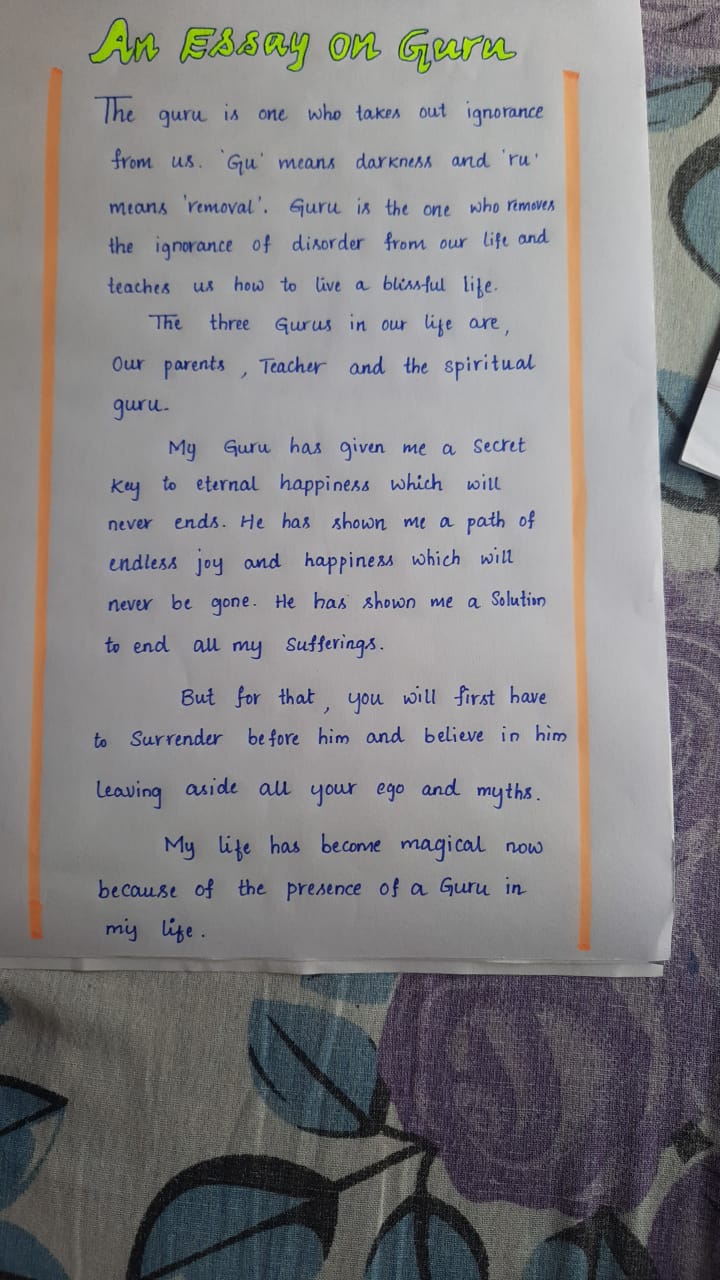 An Essay on Guru
The guru is one who takes out ignorance
from us. 'Gu' means darkness and 'ru'
means 'removal'. Guru is the one who removes
the ignorance of disorder from our life and
teaches us how to live a blissful life.
The three Gurus in our life are,
Our parents, Teacher and the spiritual
guru.
My Guru has given me a Secret
Key to eternal happiness which will
never ends. He has shown me a path of
endless joy and happiness which will
never be gone. He has shown me a Solution
to end all my Sufferings.
But for that, you will first have
to Surrender before him and believe in him
Leaving aside all your ego and myths.
My life has become magical now
because of the presence of a Guru in
my life.